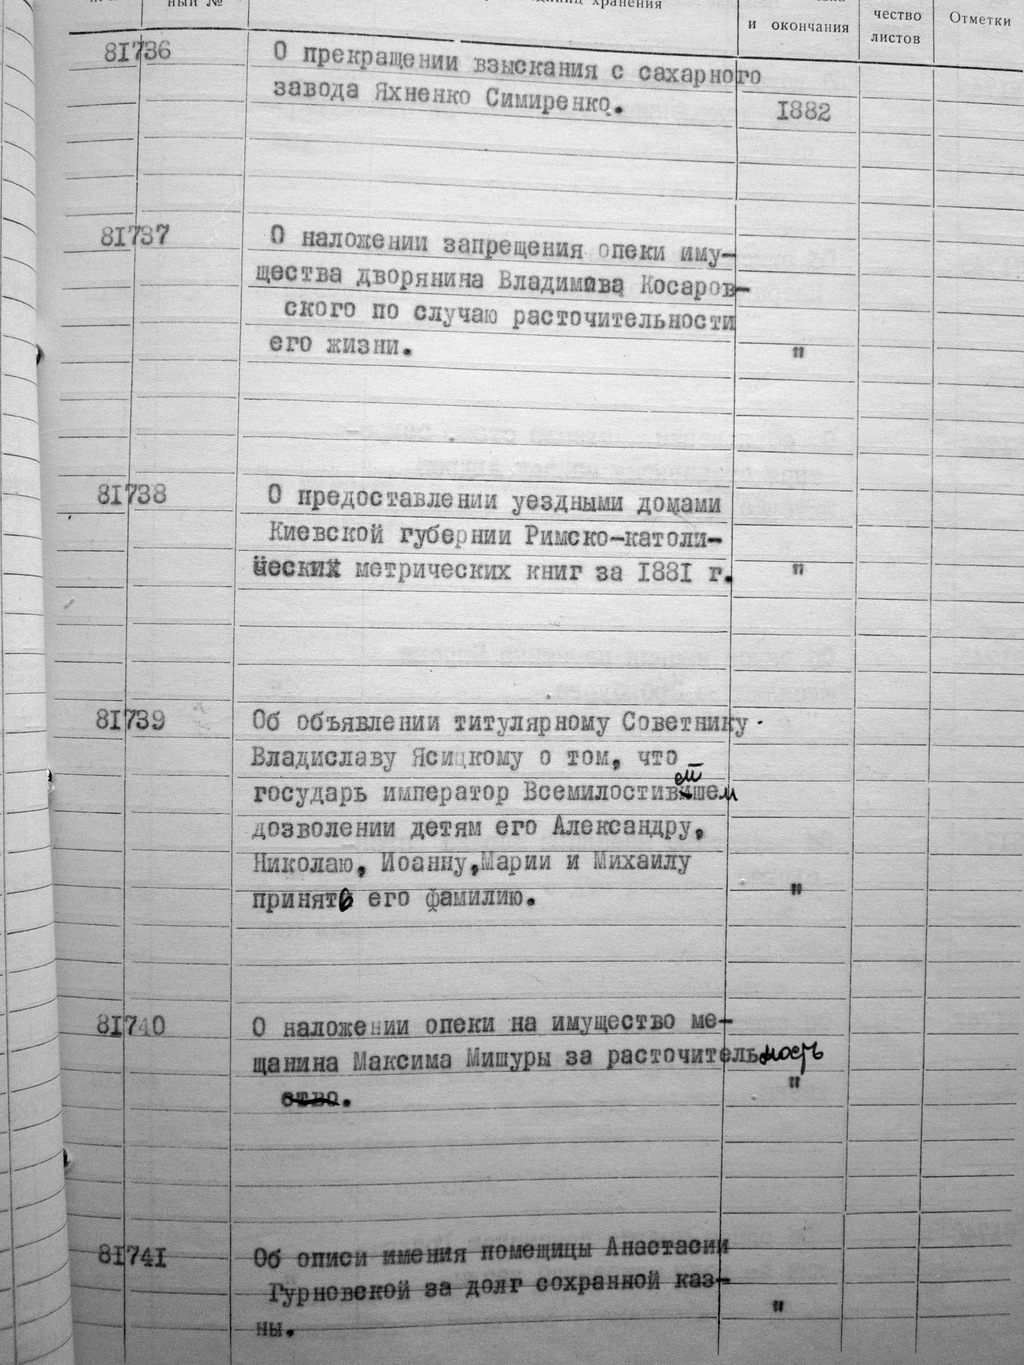 ный №
хранения
и окончания
чество
листов
Отметки
81736
О прекращении взыскания с сахарного
завода Яхненко Симиренко.
1882
81737
О наложении запрещения опеки иму-
щества дворянина Владимива Косаров-
ского по случаю расточительности
его жизни.
"
81738
О предоставлении уездными домами
Киевской губернии Римско-католи-
ческих метрических книг за 1881 г.
"
81739
Об объявлении титулярному Советнику
Владиславу Ясицкому о том, что
государь император Всемилостивейшем
дозволении детям его Александру,
Николаю, Иоанну,Марии и Михаилу
принять его фамилию.
"
81740
О наложении опеки на имущество ме-
щанина Максима Мишуры за расточительность
ство.
"
81741
Об описи имения помещицы Анастасии
Гурновской за долг сохранной каз-
ны.
"